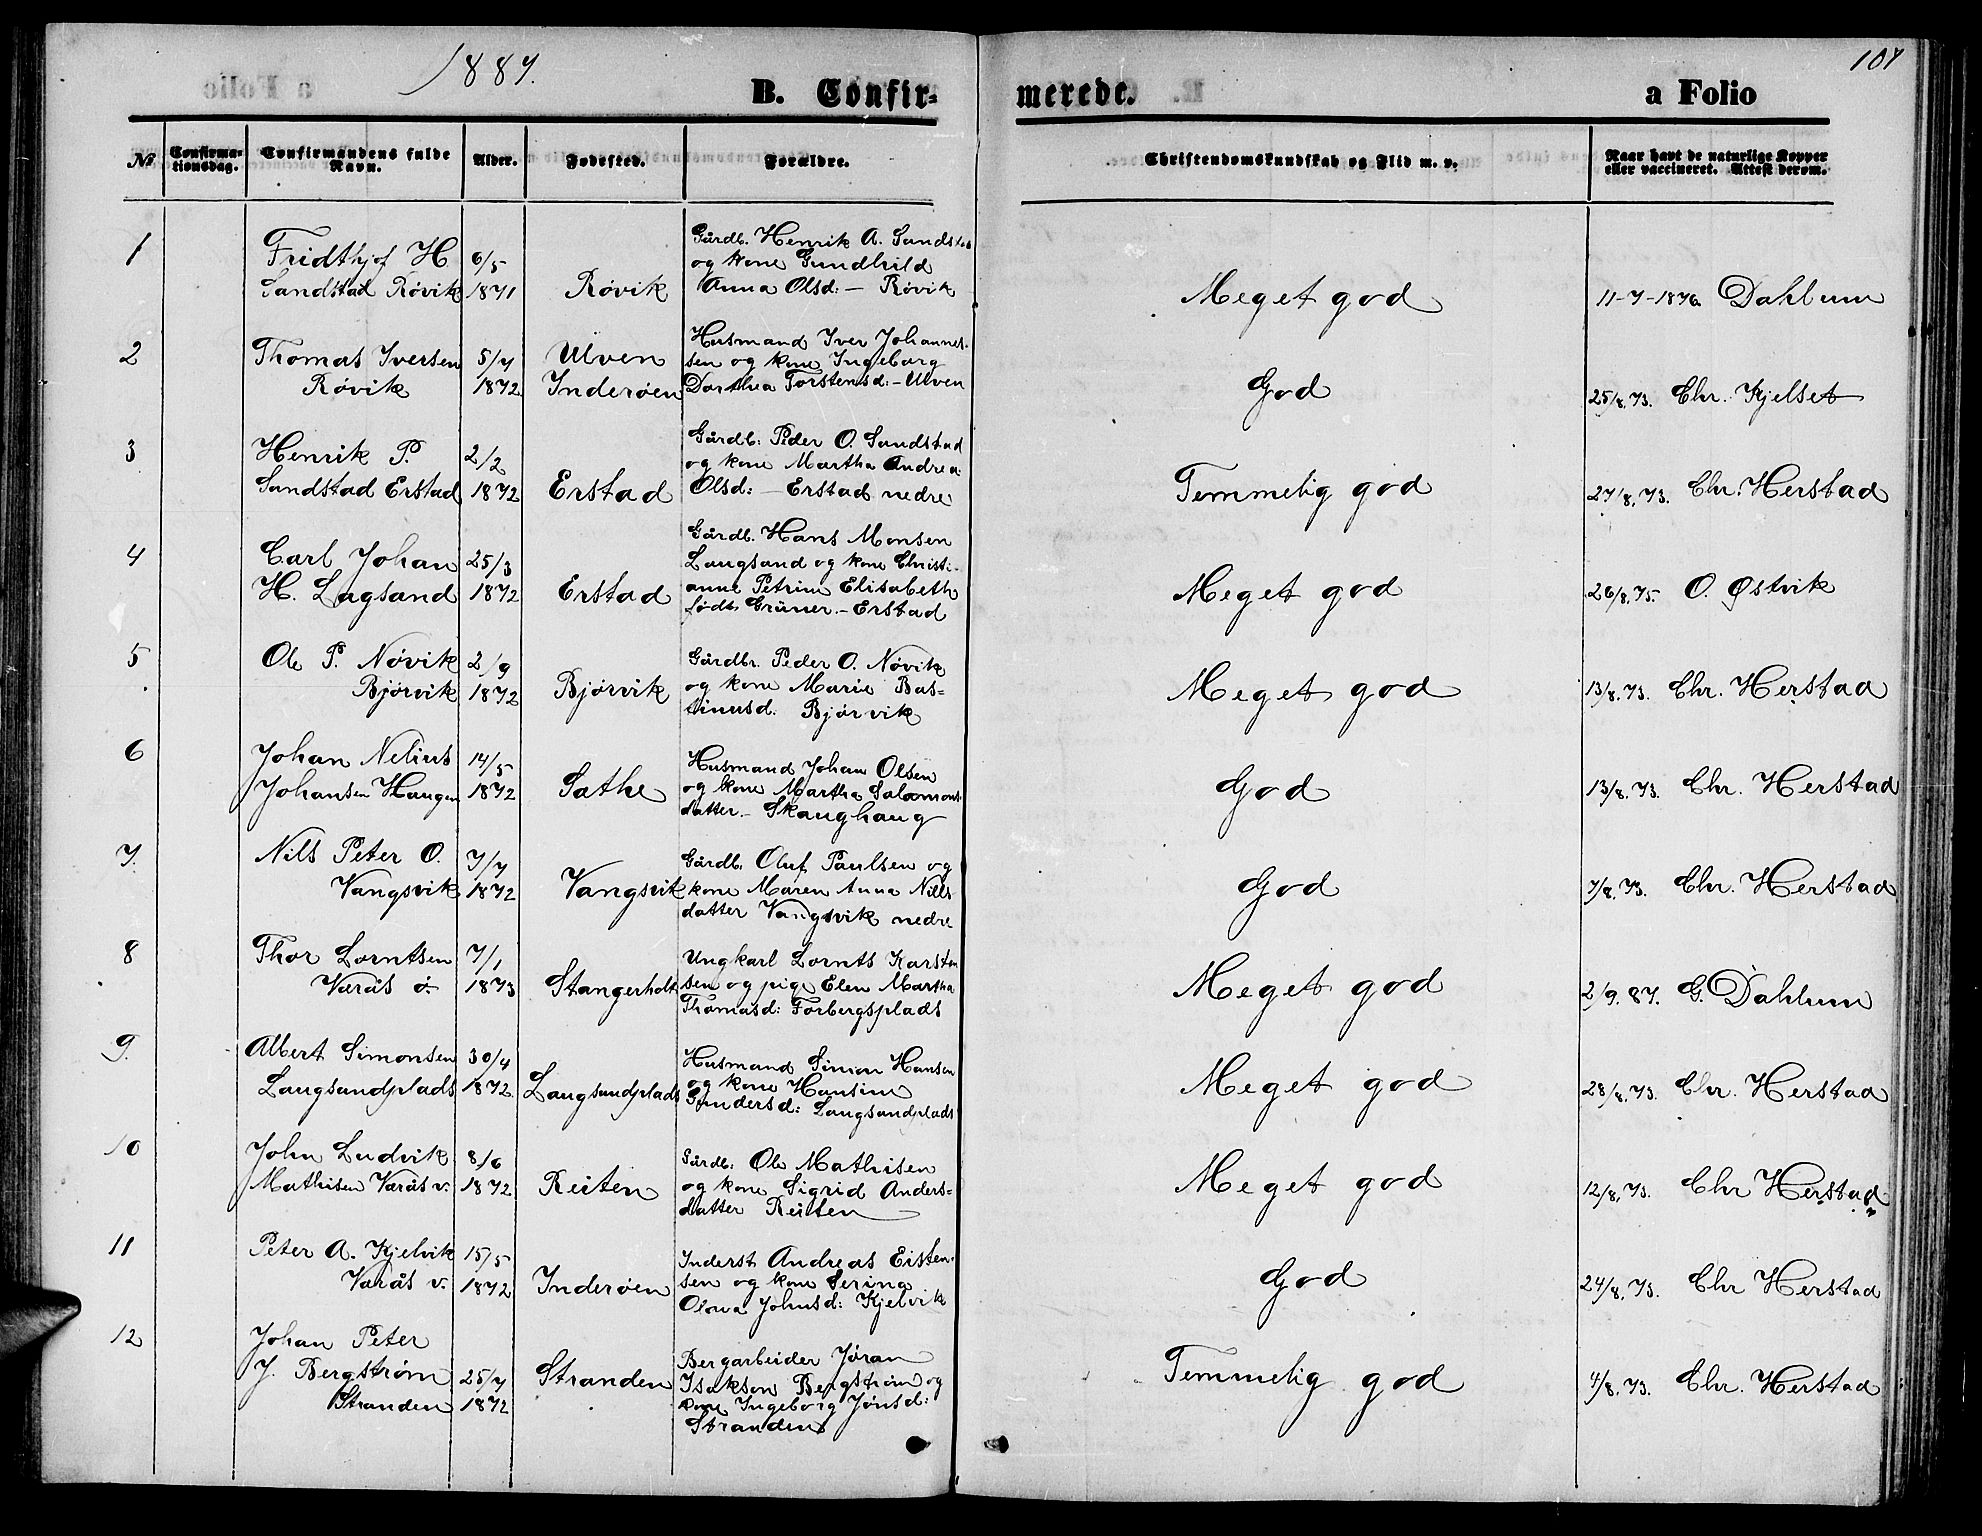 1887.
107
B. Confir-
merede.
a Folio
No
Confirma-
tionsdag.
Confirmandens fulde
Navn.
Alder.
Fødested.
Forældre.
Christendomskundskab og Flid m. v.
Naar havt de naturlige Kopper
eller vaccineret. Attest derom.
1
Fridthjof H
Sandstad Røvik
6/5
1871
Røvik
Gårdb. Henrik A. Sandstad
og kone Gundhild
Anna Olsd: - Røvik
Meget god
11-7-1876 Dahlum
2
Thomas Iversen
Røvik
5/7
1872
Ulven
Inderøen
Husmand Iver Johannes-
sen og kone Ingeborg
Dorthea Torstensd: - Ulven
God
25/8.73. Chr. Kjelset
3
Henrik P.
Sandstad Erstad
2/2
1872
Erstad
Gårdb: Peder O. Sandstad
og kone Martha Andrea
Olsd: - Erstad nedre
Temmelig god
27/8.73. Chr. Herstad
4
Carl Johan
H. Lagsand
25/3
1872
Erstad
Gårdb. Hans Monsen
Langsand og kone Christi-
anne Petrine Elisabeth
født Grüner. - Erstad
Meget god
26/8.75. O. Østvik
5
Ole P. Nøvik
Bjørvik
2/9
1872
Bjørvik
Gårdbr. Peder O. Nøvik
og kone Marie Bas-
tinusd. Bjørvik
Meget god
13/8.73. Chr. Herstad
6
Johan Nelius
Johansen Haugen
14/5
1872
Sathe
Husmand Johan Olsen
og kone Martha Salomons-
datter. - Skaughaug
God
13/8.73. Chr. Herstad
7.
Nils Peter O.
Vangsvik
7/7
1872
Vangsvik
Gårdb. Oluf Paulsen og
kone Maren Anna Nils
datter Vangsvik nedre
God
7/8.73. Chr. Herstad
8
Thor Lorntsen
Varås ø.
7/1
1873
Stangerholt
Ungkarl Lornts Karsten
sen og pige Elen Martha
Thomasd: Forbergsplads
Meget god
2/9.87. G. Dahlum
9.
Albert Simonsen
Langsandplads
30/4
1872
Langsandplads
Husmand Simon Hansen
og kone Hansine
Endersd: Langsandplads
Meget god
28/8.73. Chr. Herstad
10
John Ludvik
Mathisen Varås v.
8/6
1872
Reiten
Gårdb: Ole Mathisen
og kone Sigrid Anders-
datter Reiten
Meget god
12/8.73. Chr Herstad
11
Peter A. Kjelvik
Varås v.
15/5
1872
Inderøen
Inderst Andreas Eisten-
sen og kone Serina
Olava Johnsd: Kjelvik
God
24/8.73. Chr Herstad
12
Johan Peter
J. Bergstrøm
Stranden
25/7
1872
Stranden
Bergarbeider Jøran
Isakson Bergstrøm og
kone Ingeborg Jonsd:
Stranden
Temmelig god
4/8.73. Chr. Herstad